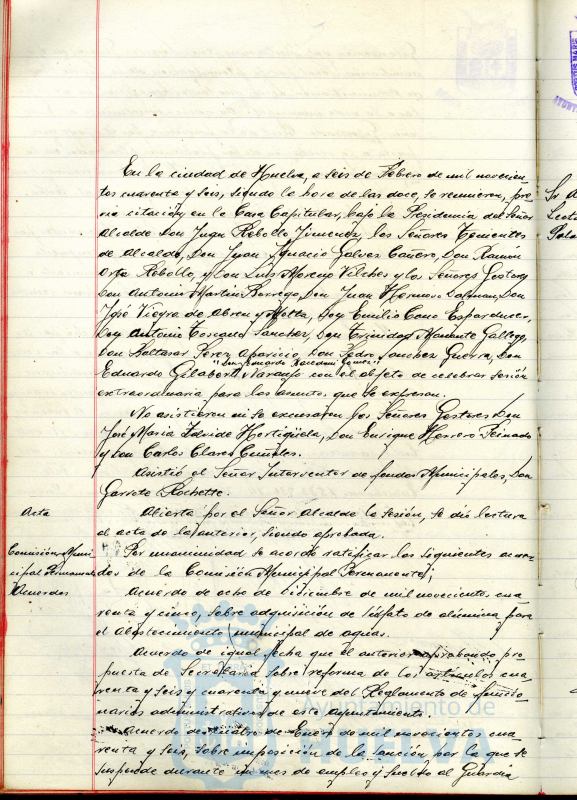 En la ciudad de Huelva, a seis de Febrero de mil novecien-
tos cuarenta y seis, siendo la hora de las doce, se reunieron, pre-
via citación, en la Casa Capitular, bajo la Presidencia del Señor
Alcalde Don Juan Rebollo Jimenez, los Señores Tenientes
de Alcalde, Don Juan Ignacio Galvez Cañero, Don Ramón
Orta Rebollo, y Don Luis Moreno Vilches y los Señores Gestores
Don Antonio Martin Borrego, Don Juan Hermoso Don
José Vieyra de Abreu y Motta, Don Emilio Cano
Don Antonio Toscano Sanchez, Don Trinidad Gallego,
Don Baltasar Perez Aparicio, Don Pedro Sanchez Guerra, Don
"Don Eduardo
Eduardo Gilabert Naranjo con el objeto de celebrar sesión
extraordinaria para los asuntos que se expresan.
No asistieron ni se excusaron los Señores Gestores Don
José Maria Hortigüela, Don Enrique Herrero Peinado
y Don Carlos Clares
Asistió el Señor Interventor de fondos Municipales, Don
Garrote Rochette.
Acta
Abierta por el Señor Alcalde la sesión, se dió lectura
al acta de la anterior, siendo aprobada.
Comisión Muni-
cipal Permanente
Acuerdos
Por unanimidad se acordó ratificar los siguientes acuer-
dos de la Comisión Municipal Permanente;
Acuerdo de ocho de Diciembre de mil novecientos cua-
renta y cinco, sobre adquisición de sulfato de alúmina para
el abastecimiento municipal de aguas.
Acuerdo de igual fecha que el anterior aprobando pro-
puesta de Secretaría sobre reforma de los articulos cua-
renta y seis y cuarenta y nueve del Reglamento de funcio-
narios administrativos de este Ayuntamiento.
Acuerdo de cuatro de Enero de mil novecientos cua-
renta y seis, sobre imposición de la sanción por la que se
suspende durante un mes de empleo y sueldo al Guardia
Ayuntamiento de
HUELVA